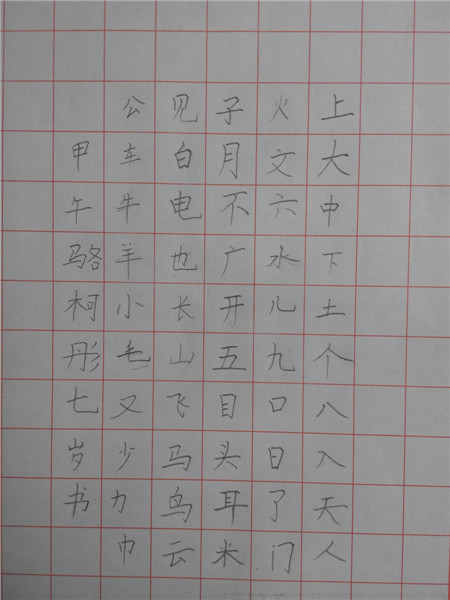 上大中下土个八入天人
火文六水儿九口日了门
子月不广开五目头耳米
见白电也长山飞马鸟云
公车牛羊小毛又少力巾
甲午骆柯彤七岁书